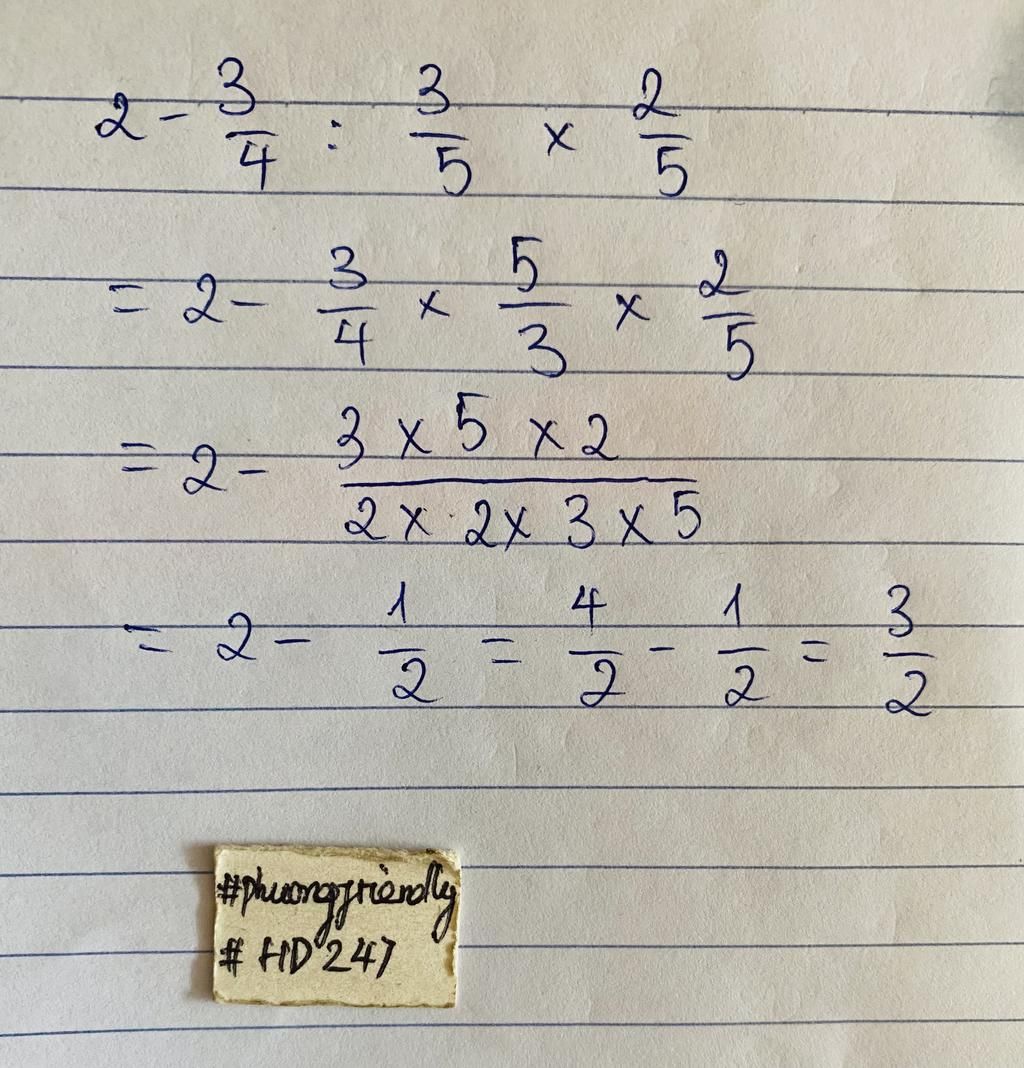 2 - 3/4 : 3/5 x 2/5
= 2 - 3/4 x 5/3 x 2/5
= 2 - (3 x 5 x 2)/(2 x 2 x 3 x 5)
= 2 - 1/2 = 4/2 - 1/2 = 3/2
#phuongfriendly
# HD 247